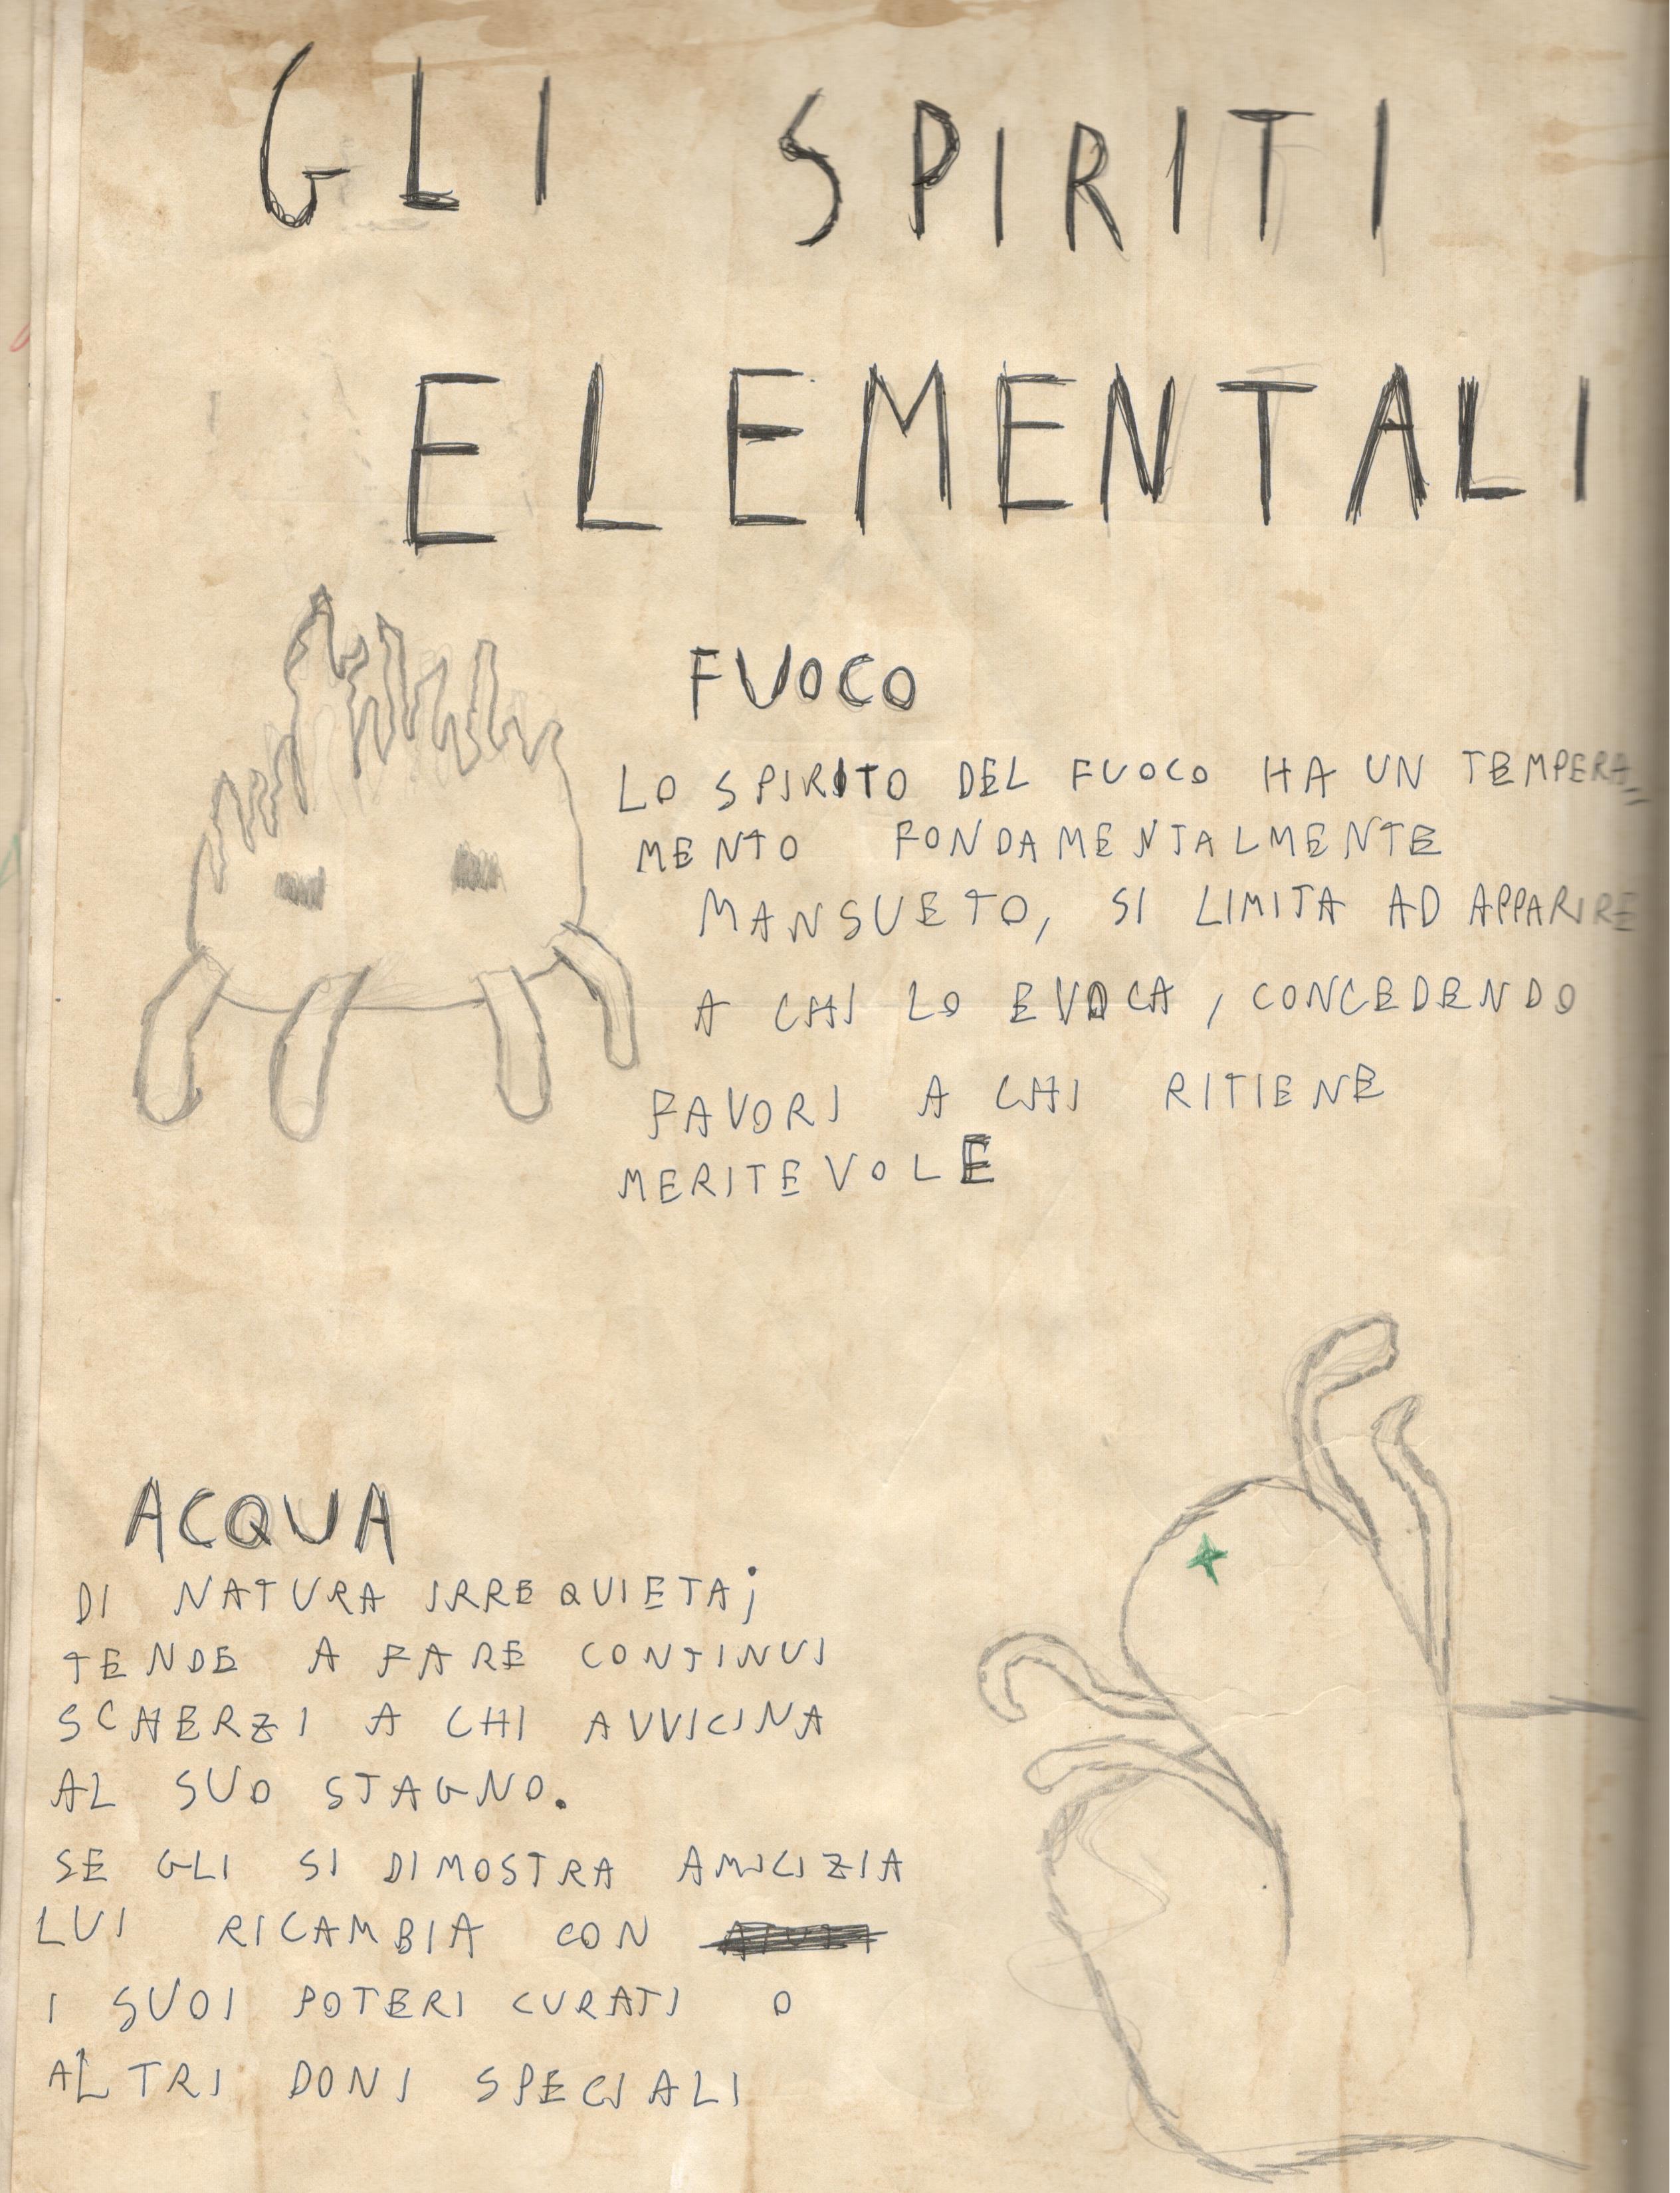 GLI SPIRITI
ELEMENTALI
FUOCO
LO SPIRITO DEL FUOCO HA UN TEMPERA=
MENTO FONDAMENTALMENTE
MANSUETO, SI LIMITA AD APPARIRE
A CHI LO EVOCA, CONCEDENDO
FAVORI A CHI RITIENE
MERITEVOLE
ACQUA
DI NATURA IRREQUIETA;
TENDE A FARE CONTINUI
SCHERZI A CHI AVVICINA
AL SUO STAGNO.
SE GLI SI DIMOSTRA AMICIZIA
LUI RICAMBIA CON
I SUOI POTERI CURATI O
ALTRI DONI SPECIALI